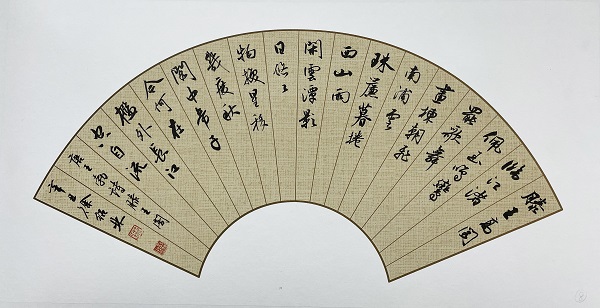 滕王高閣
臨江渚
佩玉鳴鸞
罷歌舞
畫棟朝飛
南浦雲
珠簾暮捲
西山雨
閑雲潭影
日悠悠
物換星移
幾度秋
閣中帝子
今何在
檻外長江
空自流
唐王勃詩滕王閣
辛丑